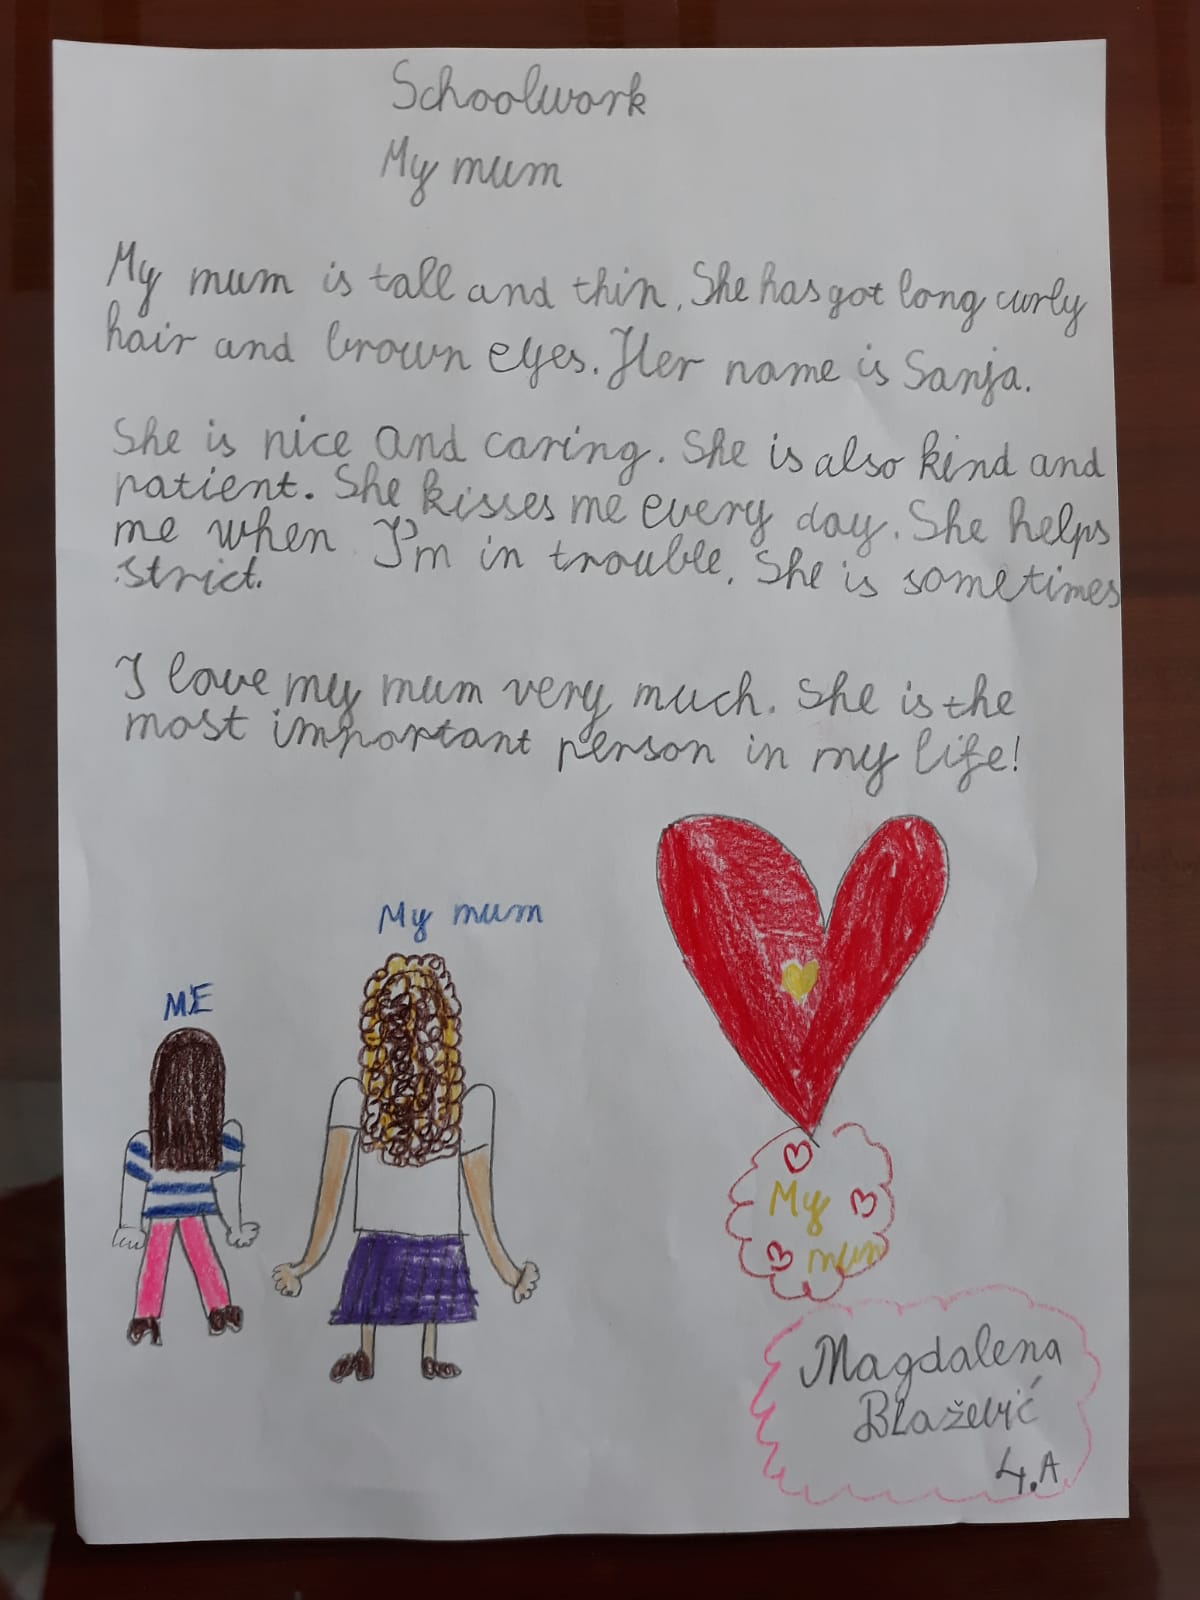 Schoolwork
My mum
My mum is tall and thin. She has got long curly
hair and brown eyes. Her name is Sanja.
She is nice and caring. She is also kind and
patient. She kisses me every day. She helps
me when I'm in trouble. She is sometimes
strict.
I love my mum very much. She is the
most important person in my life!
My mum
ME
My
mum
Magdalena
Blažević
4.A